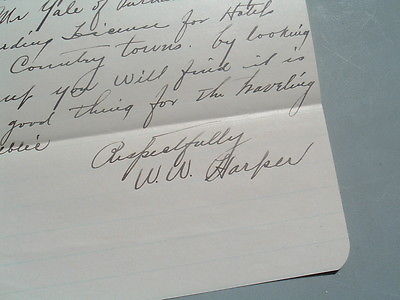 Mr Yale of
ding License for Hotels
Country towns. by looking
up you will find it is
good thing for the traveling
Respectfully
W. W. Harper